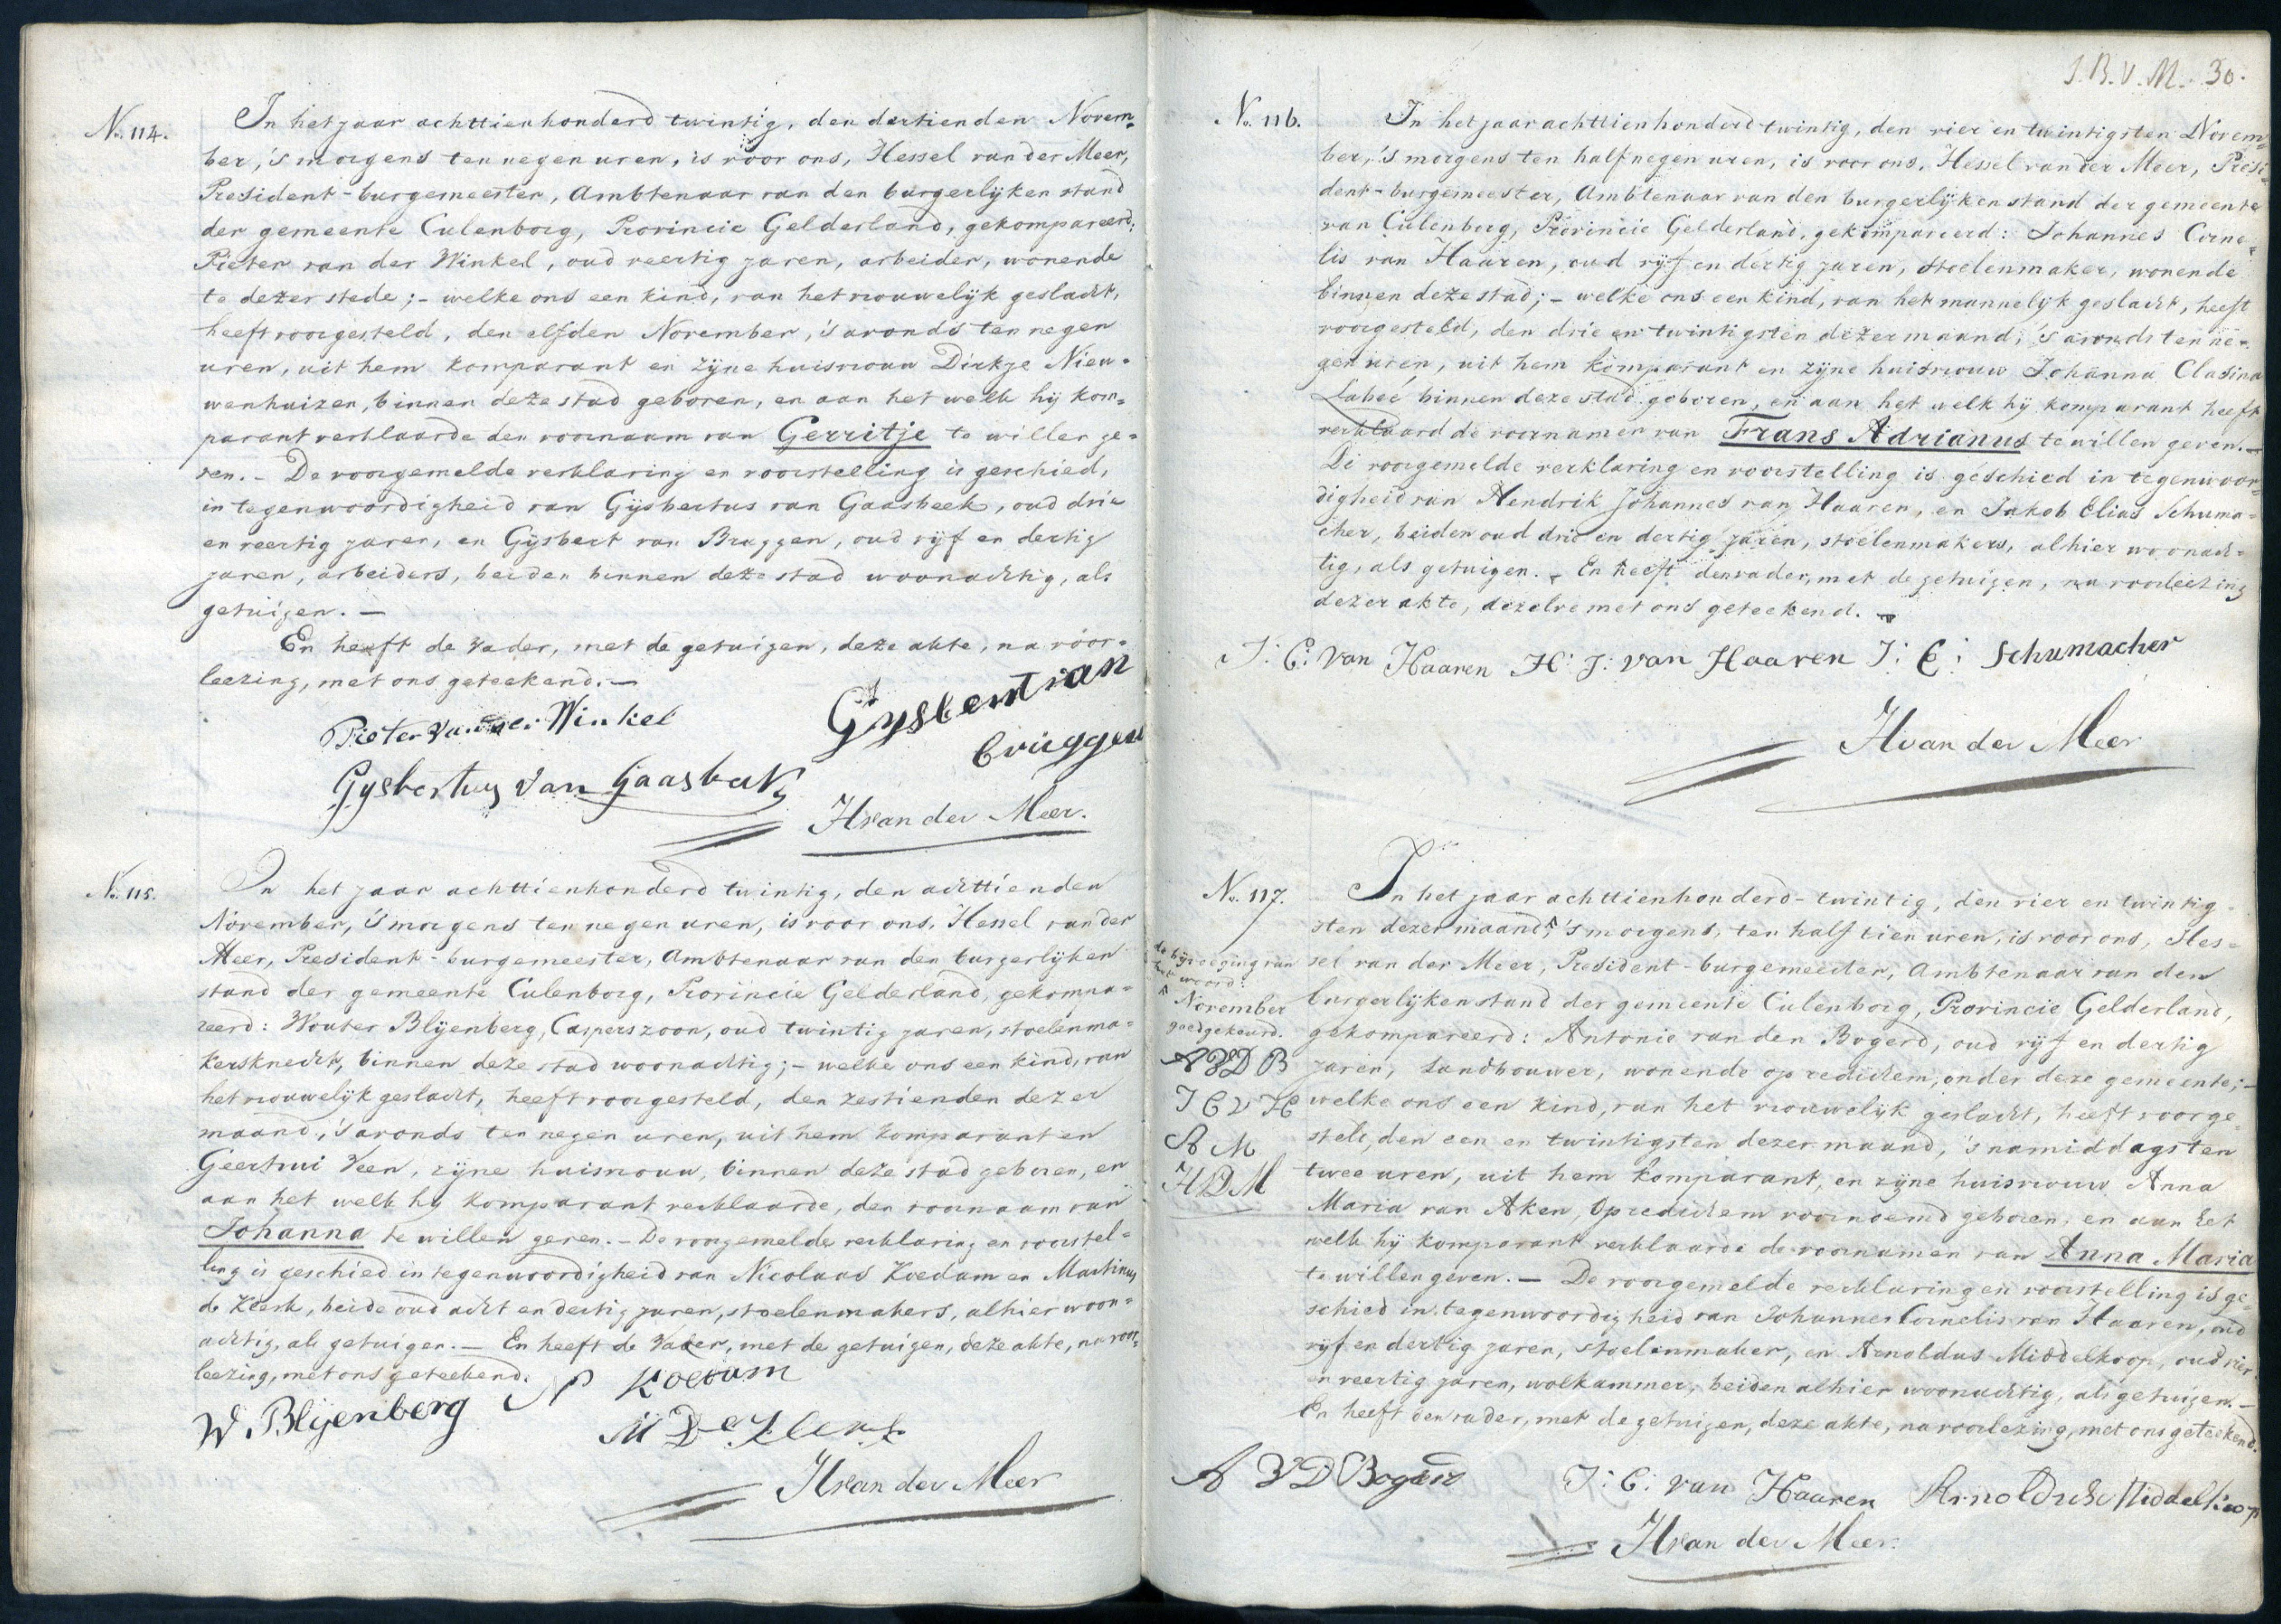 No. 114.
In het jaar achttienhonderd twintig, den dertienden Novem-
ber, 's morgens ten negen uren, is voor ons, Hessel van der Meer,
President-burgemeester, Ambtenaar van den burgerlijken stand
der gemeente Culenborg, Provincie Gelderland, gekompareerd:
Pieter van der Winkel, oud veertig jaren, arbeider, wonende
te dezer stede; - welke ons een kind, van het vrouwelijk geslacht,
heeft voorgesteld, den elfden November, 's avonds ten negen
uren, uit hem komparant en zijne huisvrouw Dirkje Nieu-
wenhuizen, binnen deze stad geboren, en aan het welk hij kom-
parant verklaarde den voornaam van Gerritje te willen ge-
ven. - De voorgemelde verklaring en voorstelling is geschied,
in tegenwoordigheid van Gijsbertus van Gaasbeek, oud drie
en veertig jaren, en Gijsbert van Bruggen, oud vijf en dertig
jaren, arbeiders, beiden binnen deze stad woonachtig, als
getuigen. —
En heeft de vader, met de getuigen, deze akte, na voor-
leezing, met ons geteekend. —
Pieter van der Winkel
Gysbert van
bruggen
Gysbertus van Gaasbeek
H van der Meer.
No. 115.
In het jaar achttienhonderd twintig, den achttienden
November, 's morgens ten negen uren, is voor ons, Hessel van der
Meer, President-burgemeester, Ambtenaar van den burgerlijken
stand der gemeente Culenborg, Provincie Gelderland, gekompa-
reerd: Wouter Blijenberg, Casperszoon, oud twintig jaren, stoelenma-
kersknecht, binnen deze stad woonachtig; - welke ons een kind, van
het vrouwelijk geslacht, heeft voorgesteld, den zestienden dezer
maand, 's avonds ten negen uren, uit hem komparant en
Geertrui Veen, zijne huisvrouw, binnen deze stad geboren, en
aan het welk hij komparant verklaarde, den voornaam van
Johanna te willen geven. - De voorgemelde verklaring en voorstel-
ling is geschied in tegenwoordigheid van Nicolaas Koedam en Martinus
de Klerk, beide oud acht en dertig jaren, stoelenmakers, alhier woon-
achtig, als getuigen. — En heeft de vader, met de getuigen, deze akte, na voor-
leezing, met ons geteekend.
W. Blijenberg N Koedam
M De Klerk
H van der Meer
J.B.V.M. 30.
No. 116.
In het jaar achttienhonderd twintig, den vier en twintigsten Novem-
ber, 's morgens ten half negen uren, is voor ons, Hessel van der Meer, Presi-
dent-burgemeester, Ambtenaar van den burgerlijken stand der gemeente
van Culenborg, Provincie Gelderland, gekompareerd: Johannes Corne-
lis van Haaren, oud vijf en dertig jaren, stoelenmaker, wonende
binnen deze stad; - welke ons een kind, van het mannelijk geslacht, heeft
voorgesteld, den drie en twintigsten dezer maand, 's avonds ten ne-
gen uren, uit hem komparant en zijne huisvrouw Johanna Clasina
Labeé binnen deze stad geboren, en aan het welk hij komparant heeft
verklaard de voornamen van Frans Adrianus te willen geven. —
De voorgemelde verklaring en voorstelling is geschied in tegenwoor-
digheid van Hendrik Johannes van Haaren, en Jakob Elias Schuma-
cher, beiden oud drie en dertig jaren, stoelenmakers, alhier woonach-
tig, als getuigen. - En heeft den vader, met de getuigen, na voorleezing
dezer akte, dezelve met ons geteekend. —
J: C: van Haaren H: J: van Haaren J: E: Schumacher
H van der Meer
No. 117.
In het jaar achttienhonderd-twintig, den vier en twintig-
sten dezer maand, 's morgens, ten half tien uren, is voor ons, Hes-
sel van der Meer, President-burgemeester, Ambtenaar van den
burgerlijken stand der gemeente Culenborg, Provincie Gelderland,
gekompareerd: Antonie van den Bogerd, oud vijf en dertig
jaren, landbouwer, wonende op redichem, onder deze gemeente; -
welke ons een kind, van het vrouwelijk geslacht, heeft voorge-
steld, den een en twintigsten dezer maand, 's namiddags ten
twee uren, uit hem komparant, en zijne huisvrouw Anna
Maria van Aken, op redichem voornoemd geboren, en aan het
welk hij komparant verklaarde de voornamen van Anna Maria
te willen geven. — De voorgemelde verklaring en voorstelling is ge-
schied in tegenwoordigheid van Johannes Cornelis van Haaren, oud
vijf en dertig jaren, stoelenmaker, en Arnoldus Middelkoop, oud vier
en veertig jaren, wolkammer, beiden alhier woonachtig, als getuigen. —
En heeft den vader, met de getuigen, deze akte, na voorlezing, met ons geteekend.
de bijvoeging van
het woord:
November
goedgekeurd.
A V D B
J C V H
A M
H V D M
A V D Bogerd J: C: van Haaren Arnoldus Middelkoop
H van der Meer.